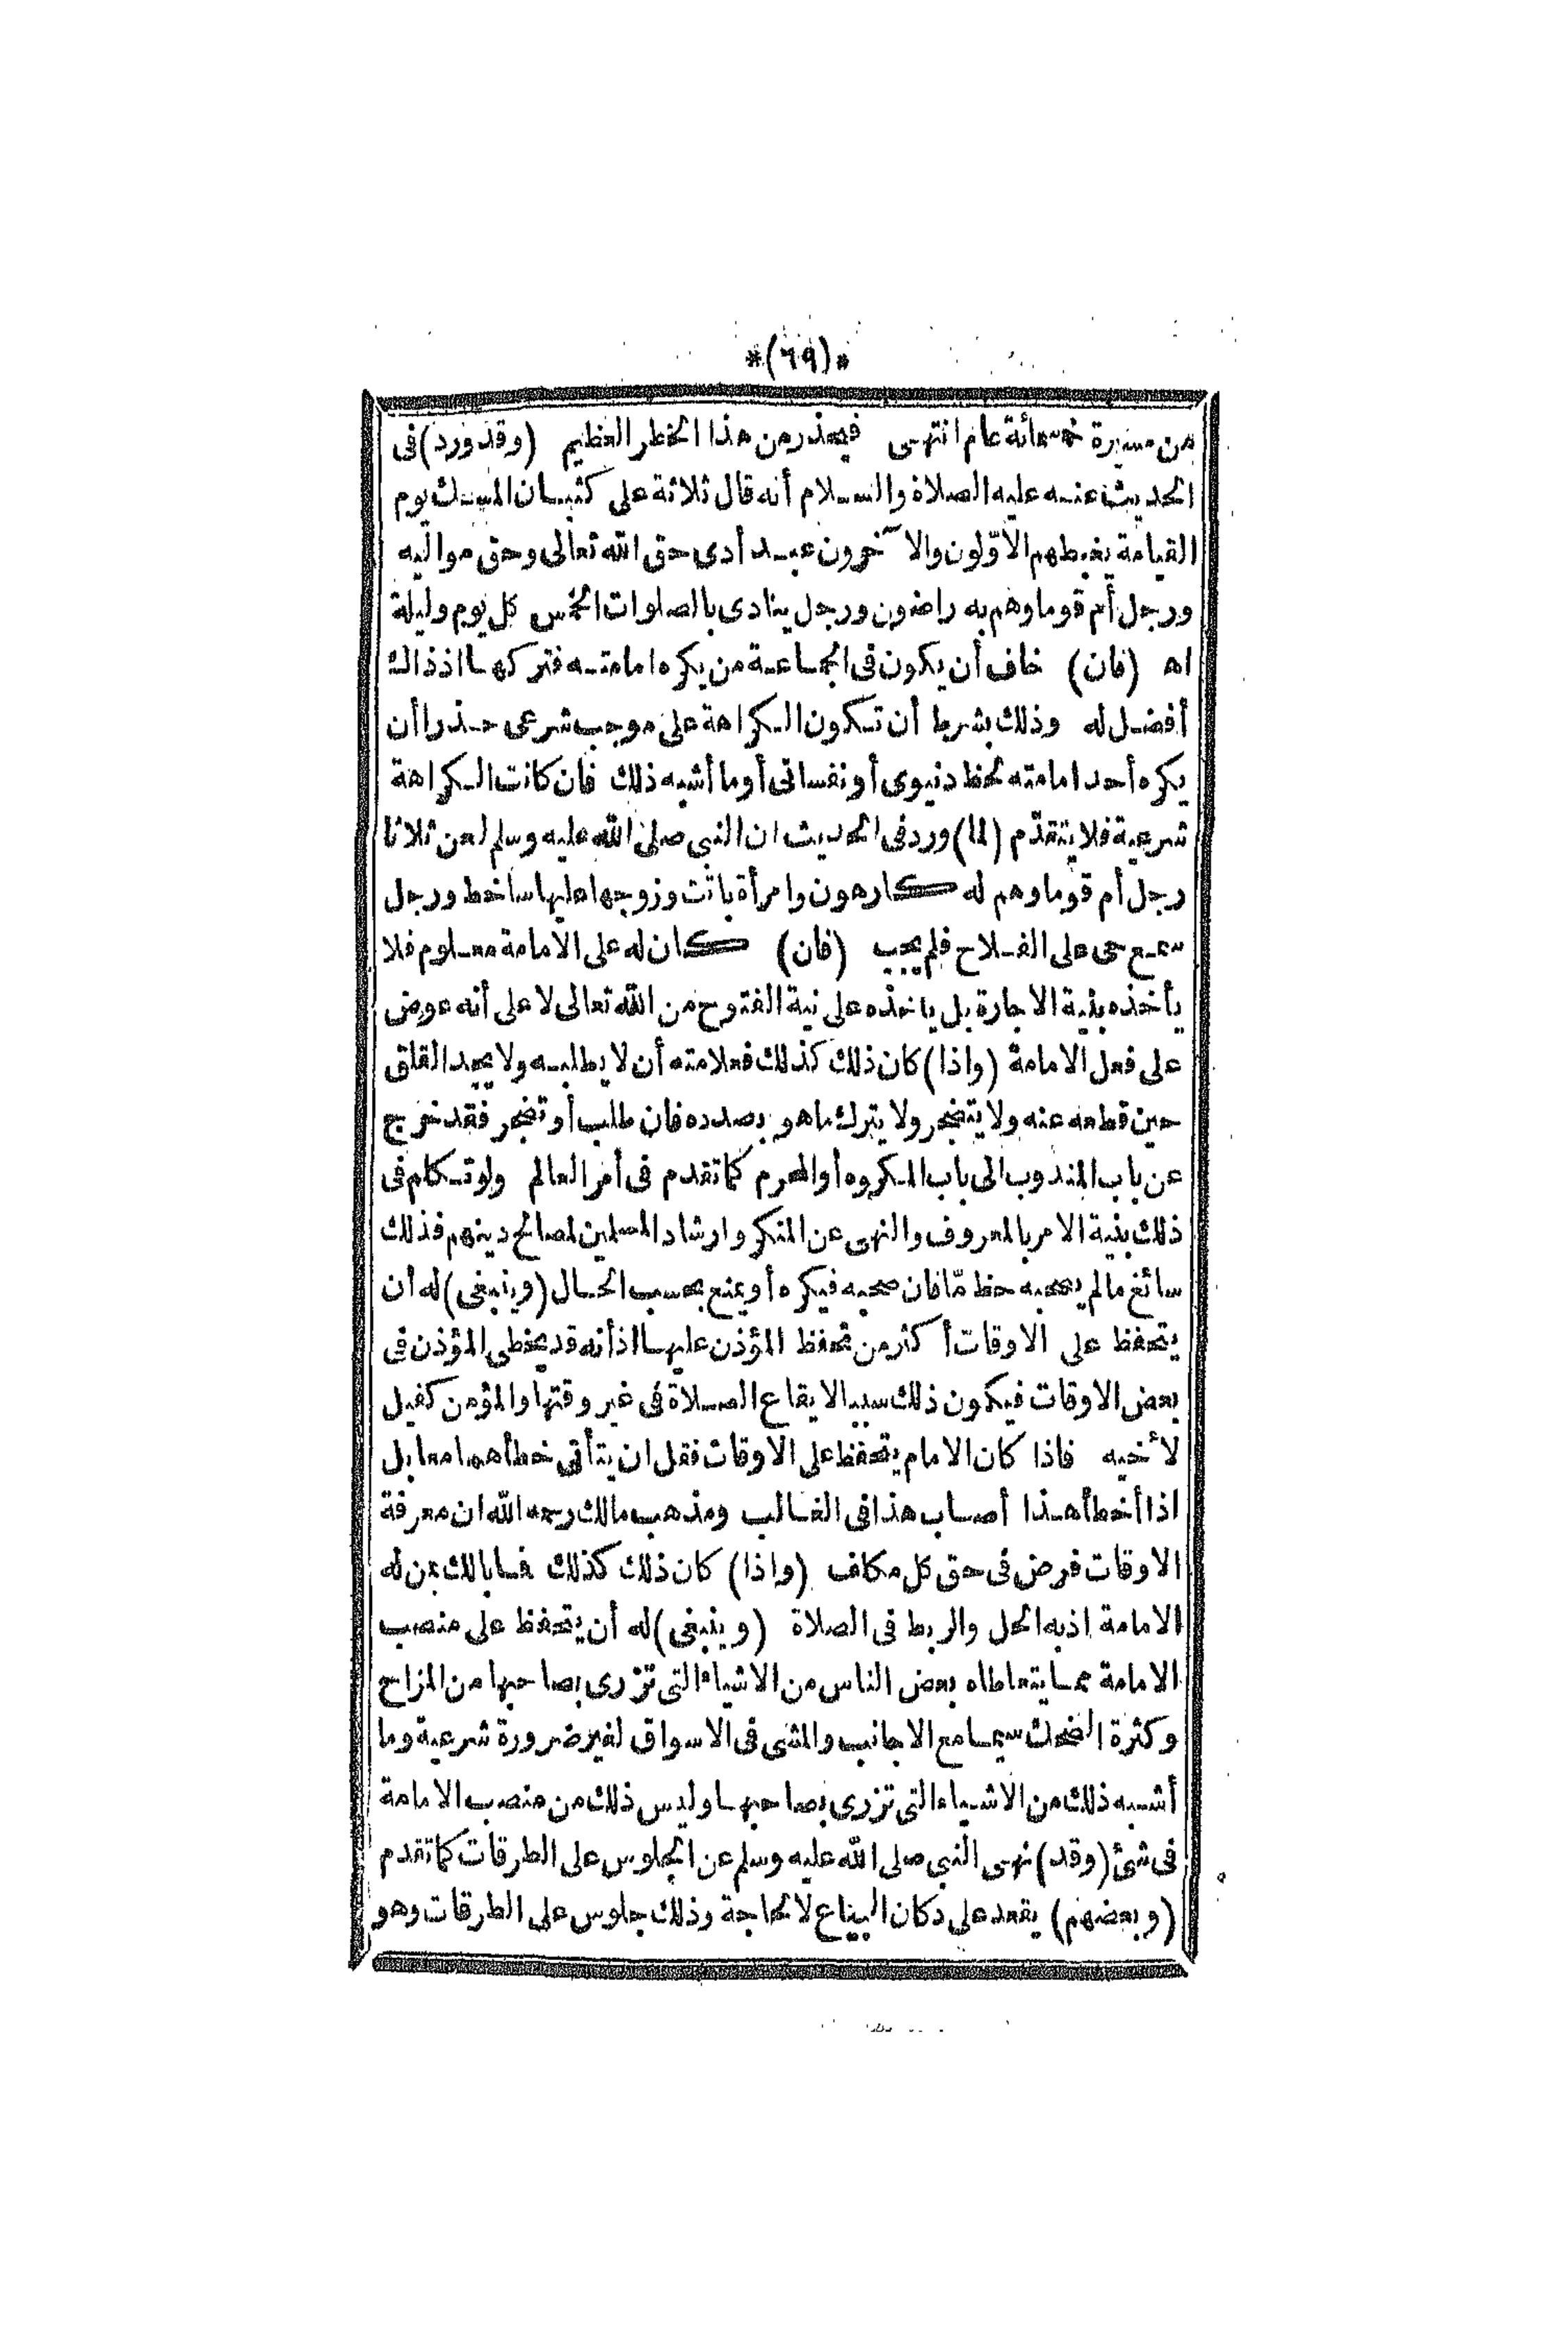 *(٦٩)*
من مسيرة خمسمائة عام انتهى فيحذر من هذا الخطر العظيم (وقد ورد) فى
الحديث عنه عليه الصلاة والسلام أنه قال ثلاثة على كثبان المسك يوم
القيامة يغبطهم الاوّلون والآخرون عبد أدى حق الله تعالى وحق مواليه
ورجل أم قوما وهم به راضون ورجل ينادى بالصلوات الخمس كل يوم وليلة
اه (فان) خاف أن يكون فى الجماعة من يكره امامته فتركها اذ ذاك
أفضل له وذلك بشرط أن تكون الكراهة على موجب شرعى حذرا أن
يكره أحد امامته لحظ دنيوى أو نفسانى أو ما أشبه ذلك فان كانت الكراهة
شرعية فلا يتقدّم (لما) ورد فى الحديث ان النبى صلى الله عليه وسلم لعن ثلاثا
رجل أم قوما وهم له كارهون وامرأة باتت وزوجها عليها ساخط ورجل
سمع حى على الفلاح فلم يجب (فان) كان له على الامامة معلوم فلا
يأخذه بنية الاجارة بل ياخذه على نية الفتوح من الله تعالى لا على أنه عوض
على فعل الامامة (واذا) كان ذلك كذلك فعلامته أن لا يطلبه ولا يجد القلق
حين قطعه عنه ولا يتضجر ولا يترك ما هو بصدده فان طلب أو تضجر فقد خرج
عن باب المندوب الى باب المكروه أو المحرم كما تقدم فى أمر العالم ولو تكلم فى
ذلك بنية الامر بالمعروف والنهى عن المنكر وارشاد المصلين لمصالح دينهم فذلك
سائغ ما لم يصحبه حظ مّا فان صحبه فيكره أو يمنع بحسب الحال (وينبغى) له أن
يتحفظ على الاوقات أكثر من تحفظ المؤذن عليها اذ أنه قد يخطى المؤذن فى
بعض الاوقات فيكون ذلك سببا لايقاع الصلاة فى غير وقتها والمؤمن كفيل
لأخيه فاذا كان الامام يتحفظ على الاوقات فقل ان يتأتى خطأهما معا بل
اذا أخطأ هذا أصاب هذا فى الغالب ومذهب مالك رحمه الله ان معرفة
الاوقات فرض فى حق كل مكلف (واذا) كان ذلك كذلك فما بالك بمن له
الامامة اذ به الحل والربط فى الصلاة (وينبغى) له أن يتحفظ على منصب
الامامة مما يتعاطاه بعض الناس من الاشياء التى تزرى بصاحبها من المزاح
وكثرة الضحك سيما مع الاجانب والمشى فى الاسواق لغير ضرورة شرعية وما
أشبه ذلك من الاشياء التى تزرى بصاحبها وليس ذلك من منصب الامامة
فى شئ (وقد) نهى النبى صلى الله عليه وسلم عن الجلوس على الطرقات كما تقدم
(وبعضهم) يقعد على دكان البياع لا لحاجة وذلك جلوس على الطرقات وهو